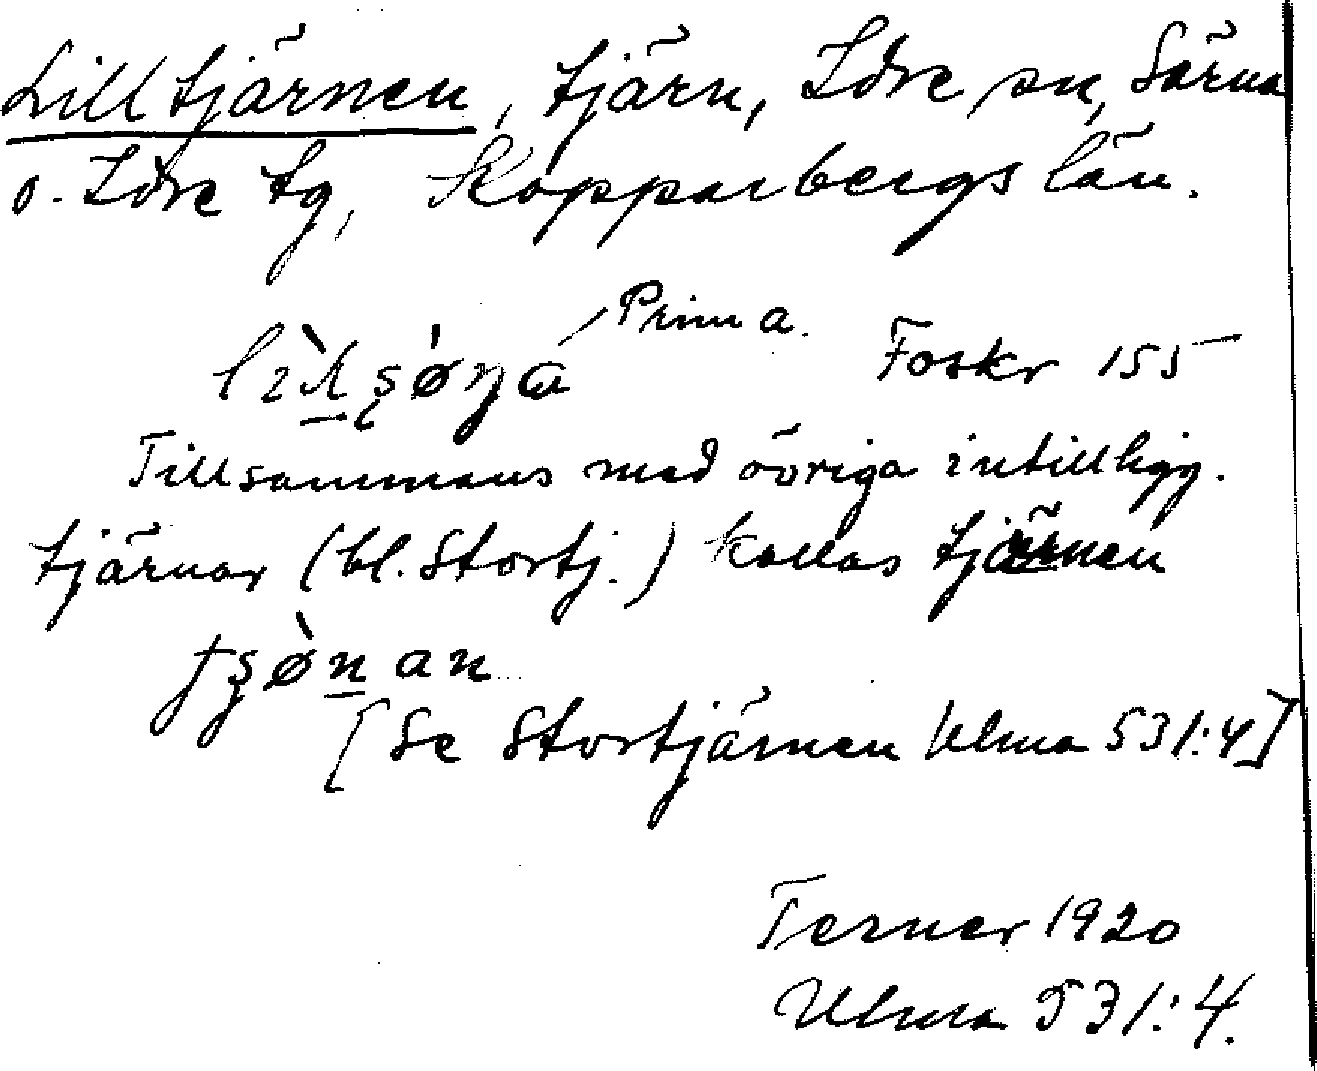 Lilltjärnen, tjärn, Idre sn, Särna
o. Idre tg, Kopparbergs län.
Prima. Foskr 155
Tillsammans med övriga intillligg.
tjärnar (bl. Stortj.) kallas tjärnen
[Se Stortjärnen Ulma 531:4]
Terner 1920
Ulma 531:4.